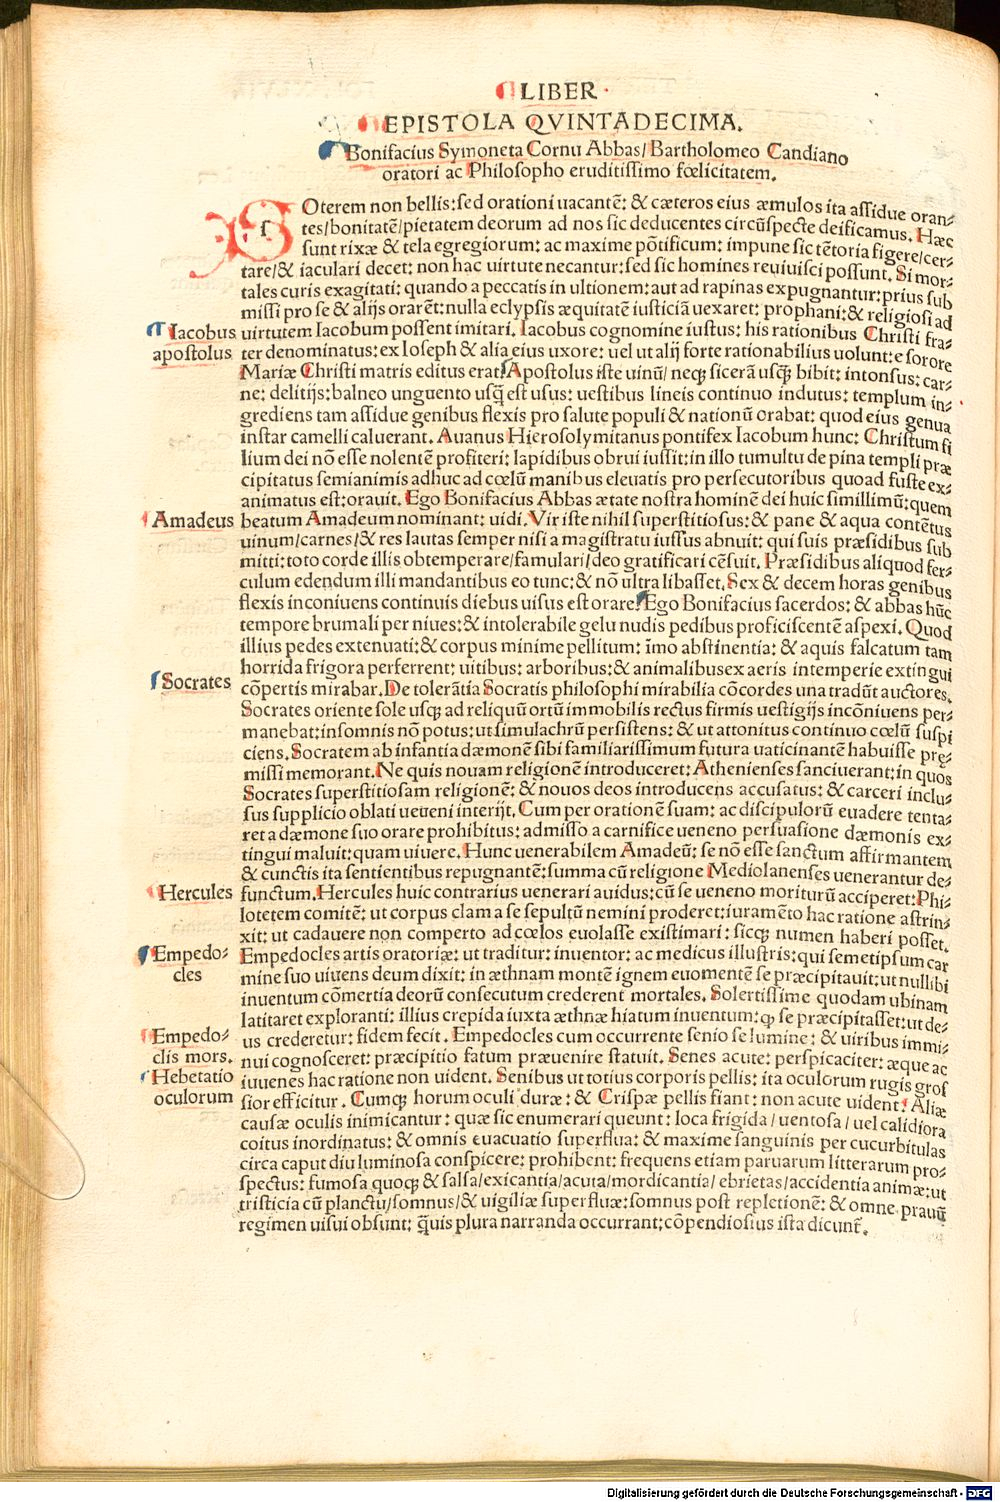 LIBER
EPISTOLA QVINTADECIMA.
Bonifacius Symoneta Cornu Abbas/ Bartholomeo Candiano
oratori ac Philosopho eruditissimo fœlicitatem.
SOterem non bellis: sed orationi uacantē: & cæteros eius æmulos ita assidue oran⸗
tes/bonitatē/pietatem deorum ad nos sic deducentes circūspecte deificamus. Hæc
sunt rixæ & tela egregiorum: ac maxime pōtificum: impune sic tētoria figere/cer⸗
tare/& iaculari decet: non hac uirtute necantur: sed sic homines reuiuisci possunt. Si mor⸗
tales curis exagitati: quando a peccatis in ultionem: aut ad rapinas expugnantur: prius sub
missi pro se & alijs orarēt: nulla eclypsis æquitatē iusticiā uexaret: prophani: & religiosi ad
Iacobus uirtutem Iacobum possent imitari. Iacobus cognomine iustus: his rationibus Christi fra⸗
apostolus ter denominatus: ex Ioseph & alia eius uxore: uel ut alij forte rationabilius uolunt: e sorore
Mariæ Christi matris editus erat. Apostolus iste uinū/ neqꝫ sicerā usqꝫ bibit: intonsus: car⸗
ne: delitijs: balneo unguento usq̄ est usus: uestibus lineis continuo indutus: templum in⸗
grediens tam assidue genibus flexis pro salute populi & nationū orabat: quod eius genua
instar cameli caluerant. Auanus Hierosolymitanus pontifex Iacobum hunc: Christum fi
lium dei nō esse nolentē profiteri: lapidibus obrui iussit: in illo tumultu de pina templi præ
cipitatus semianimis adhuc ad cœlū manibus eleuatis pro persecutoribus quoad fuste ex⸗
animatus est: orauit. Ego Bonifacius Abbas ætate nostra hominē dei huic simillimū: quem
Amadeus beatum Amadeum nominant: uidi. Vir iste nihil superstitiosus: & pane & aqua contētus
uinum/carnes/& res lautas semper nisi a magistratu iussus abnuit: qui suis præsidibus sub
mitti: toto corde illis obtemperare/famulari/deo gratificari cēsuit. Præsidibus aliquod fer⸗
culum edendum illi mandantibus eo tunc: & nō ultra libasset. Sex & decem horas genibus
flexis inconiuens continuis diebus uisus est orare. Ego Bonifacius sacerdos: & abbas hūc
tempore brumali per niues: & intolerabile gelu nudis pedibus proficiscentē aspexi. Quod
illius pedes extenuati: & corpus minime pellitum: īmo abstinentia: & aquis falcatum tam
horrida frigora perferrent: uitibus: arboribus: & animalibus ex aeris intemperie extingui
Socrates cōpertis mirabar. De tolerātia Socratis philosophi mirabilia cōcordes una tradūt auctores.
Socrates oriente sole usqꝫ ad reliquū ortū immobilis rectus firmis uestigijs incōniuens per⸗
manebat: insomnis nō potus: ut simulachrū persistens: & ut attonitus continuo cœlū suspi
ciens. Socratem ab infantia dæmonē sibi familiarissimum futura uaticinantē habuisse prę⸗
missi memorant. Ne quis nouam religionē introduceret: Athenienses sanciuerant: in quos
Socrates superstitiosam religionē: & nouos deos introducens accusatus: & carceri inclu⸗
sus supplicio oblati ueneni interijt. Cum per orationē suam: ac discipulorū euadere tenta⸗
ret a dæmone suo orare prohibitus: admisso a carnifice ueneno persuasione dæmonis ex⸗
tingui maluit: quam uiuere. Hunc uenerabilem Amadeū: se nō esse sanctum affirmantem
& cunctis ita sentientibus repugnantē: summa cū religione Mediolanenses uenerantur de⸗
Hercules functum. Hercules huic contrarius uenerari auidus: cū se ueneno moriturū acciperet: Phi⸗
lotetem comitē: ut corpus clam a se sepultū nemini proderet: iuramēto hac ratione astrin⸗
xit: ut cadauere non comperto ad cœlos euolasse existimari: sicqꝫ numen haberi posset.
Empedo⸗ Empedocles artis oratoriæ: ut traditur: inuentor: ac medicus illustris: qui semetipsum car
cles mine suo uiuens deum dixit: in æthnam montē ignem euomentē se præcipitauit: ut nullibi
inuentum cōmertia deorū consecutum crederent mortales. Solertissime quodam ubinam
latitaret exploranti: illius crepida iuxta æthnæ hiatum inuentum: ꝙ se præcipitasset: ut de⸗
Empedo⸗ us crederetur: fidem fecit. Empedocles cum occurrente senio se lumine: & uiribus immi⸗
clis mors. nui cognosceret: præcipitio fatum præuenire statuit. Senes acute: perspicaciter: æque ac
Hebetatio iuuenes hac ratione non uident. Senibus ut totius corporis pellis: ita oculorum rugis gros
oculorum sior efficitur. Cumqꝫ horum oculi duræ: & Crispæ pellis fiant: non acute uident. Aliæ
causæ oculis inimicantur: quæ sic enumerari queunt: loca frigida/ uentosa/ uel calidiora
coitus inordinatus: & omnis euacuatio superflua: & maxime sanguinis per cucurbitulas
circa caput diu luminosa conspicere: prohibent: frequens etiam paruarum litterarum pro⸗
spectus: fumosa quoqꝫ & salsa/exicantia/acuta/mordicantia/ ebrietas/accidentia animæ: ut
tristicia cū planctu/somnus/& uigiliæ superfluæ: somnus post repletionē: & omne prauū
regimen uisui obsunt: q̄uis plura narranda occurrant: cōpendiosius ista dicunt̄.
Digitalisierung gefördert durch die Deutsche Forschungsgemeinschaft - DFG